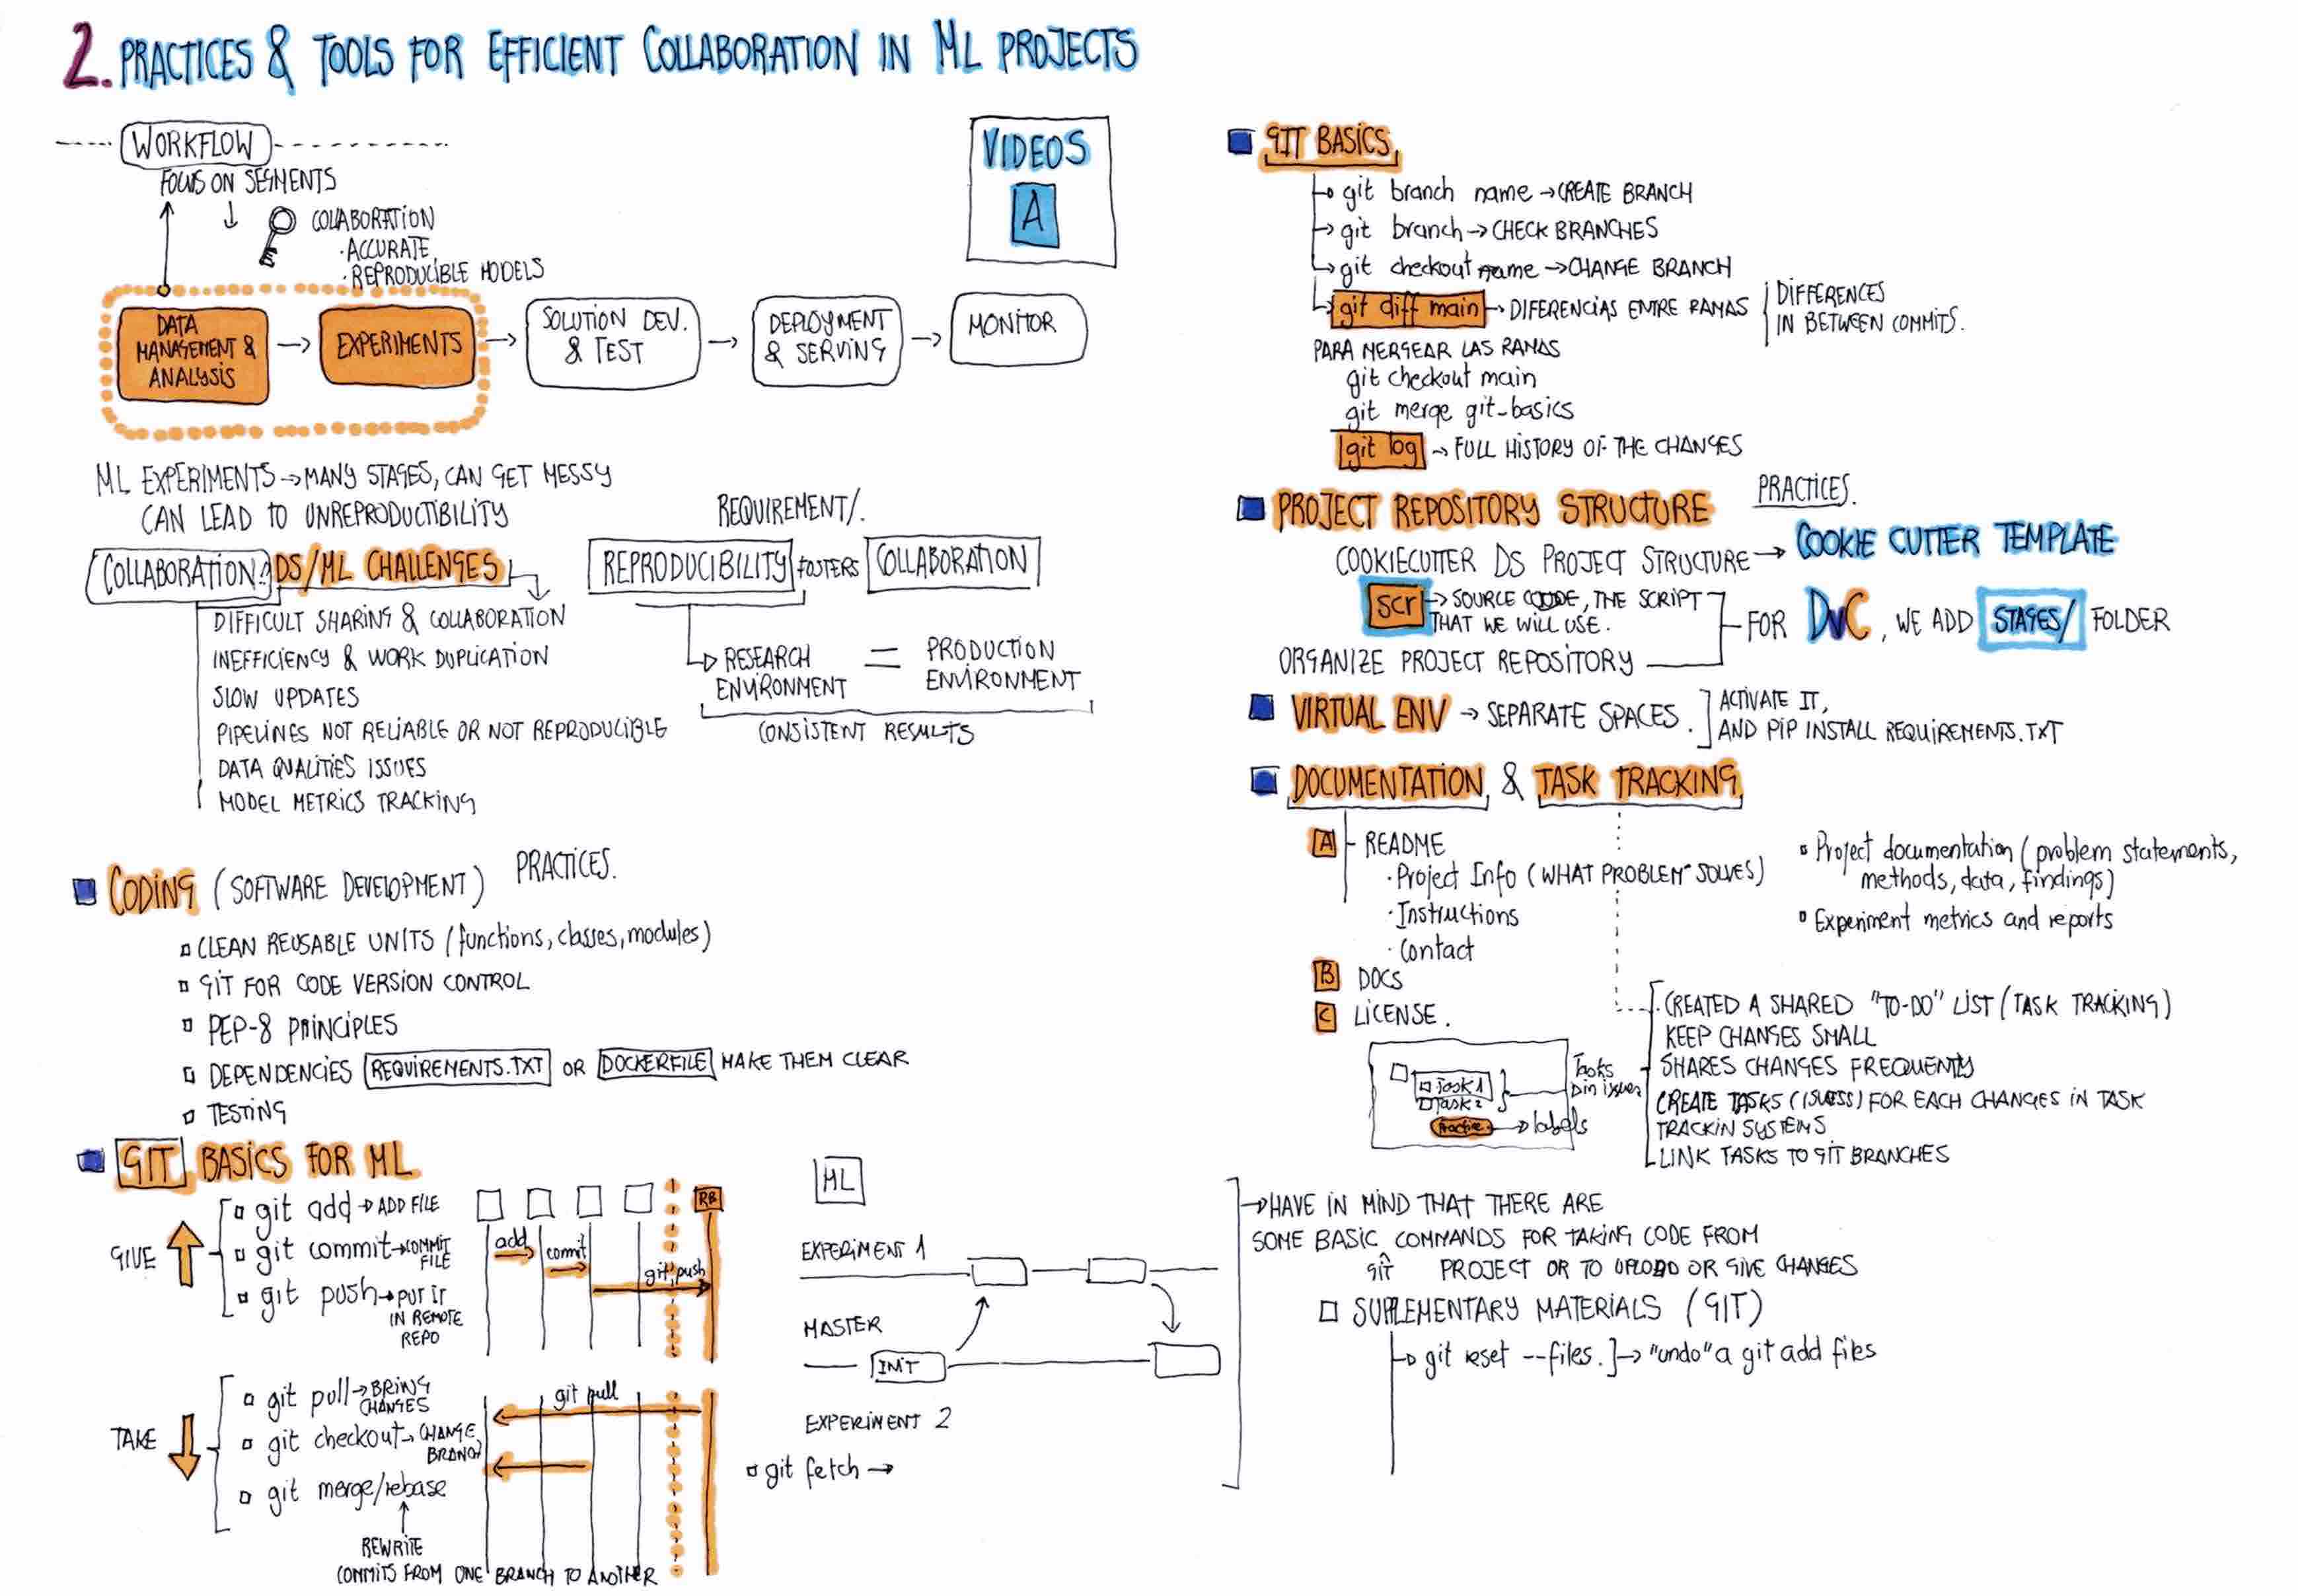 2. PRACTICES & TOOLS FOR EFFICIENT COLLABORATION IN ML PROJECTS
WORKFLOW
FOCUS ON SEGMENTS
COLLABORATION
· ACCURATE
· REPRODUCIBLE MODELS
DATA
MANAGEMENT &
ANALYSIS
EXPERIMENTS
SOLUTION DEV.
& TEST
DEPLOYMENT
& SERVING
MONITOR
VIDEOS
A
ML EXPERIMENTS → MANY STAGES, CAN GET MESSY
CAN LEAD TO UNREPRODUCTIBILITY
COLLABORATION! DS/ML CHALLENGES
DIFFICULT SHARING & COLLABORATION
INEFFICIENCY & WORK DUPLICATION
SLOW UPDATES
PIPELINES NOT RELIABLE OR NOT REPRODUCIBLE
DATA QUALITIES ISSUES
MODEL METRICS TRACKING
REQUIREMENT/.
REPRODUCIBILITY FOSTERS COLLABORATION
RESEARCH
ENVIRONMENT
=
PRODUCTION
ENVIRONMENT
CONSISTENT RESULTS
CODING (SOFTWARE DEVELOPMENT) PRACTICES.
CLEAN REUSABLE UNITS (functions, classes, modules)
GIT FOR CODE VERSION CONTROL
PEP-8 PRINCIPLES
DEPENDENCIES REQUIREMENTS.TXT OR DOCKERFILE MAKE THEM CLEAR
TESTING
GIT BASICS FOR ML
GIVE
git add → ADD FILE
git commit → COMMIT
FILE
git push → PUT IT
IN REMOTE
REPO
RB
add
commit
git push
TAKE
git pull → BRING
CHANGES
git checkout → CHANGE
BRANCH
git merge/rebase
REWRITE
COMMITS FROM ONE BRANCH TO ANOTHER
git pull
ML
EXPERIMENT 1
MASTER
INIT
EXPERIMENT 2
git fetch →
GIT BASICS
git branch name → CREATE BRANCH
git branch → CHECK BRANCHES
git checkout name → CHANGE BRANCH
git diff main → DIFERENCIAS ENTRE RAMAS
DIFFERENCES
IN BETWEEN COMMITS.
PARA MERGEAR LAS RAMAS
git checkout main
git merge git-basics
git log → FULL HISTORY OF THE CHANGES
PROJECT REPOSITORY STRUCTURE PRACTICES.
COOKIECUTTER DS PROJECT STRUCTURE → COOKIE CUTTER TEMPLATE
scr → SOURCE CODE, THE SCRIPT
THAT WE WILL USE.
ORGANIZE PROJECT REPOSITORY
FOR DVC, WE ADD STAGES/ FOLDER
VIRTUAL ENV → SEPARATE SPACES.
ACTIVATE IT,
AND PIP INSTALL REQUIREMENTS.TXT
DOCUMENTATION & TASK TRACKING
A README
· Project Info (WHAT PROBLEM SOLVES)
· Instructions
· Contact
B DOCS
C LICENSE.
Project documentation (problem statements,
methods, data, findings)
Experiment metrics and reports
Task 1
Task 2
Practice
Tasks
in issues
labels
CREATED A SHARED "TO-DO" LIST (TASK TRACKING)
KEEP CHANGES SMALL
SHARES CHANGES FREQUENTLY
CREATE TASKS (ISUESS) FOR EACH CHANGES IN TASK
TRACKIN SYSTEMS
LINK TASKS TO GIT BRANCHES
→ HAVE IN MIND THAT THERE ARE
SOME BASIC COMMANDS FOR TAKING CODE FROM
GIT PROJECT OR TO UPLOAD OR GIVE CHANGES
SUPPLEMENTARY MATERIALS (GIT)
git reset --files. → "undo" a git add files